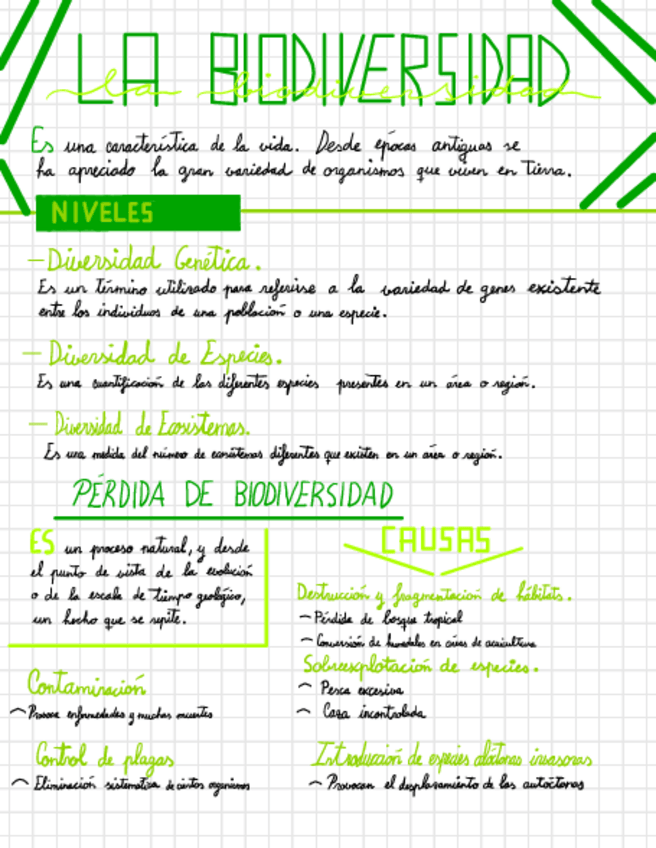 LA BIODIVERSIDAD
la biodiversidad
Es una característica de la vida. Desde épocas antiguas se
ha apreciado la gran variedad de organismos que viven en Tierra.
NIVELES
- Diversidad Genética.
Es un término utilizado para referirse a la variedad de genes existente
entre los individuos de una población o una especie.
- Diversidad de Especies.
Es una cuantificación de las diferentes especies presentes en un área o región.
- Diversidad de Ecosistemas.
Es una medida del número de ecosistemas diferentes que existen en un área o región.
PÉRDIDA DE BIODIVERSIDAD
ES un proceso natural, y desde
el punto de vista de la evolución
o de la escala de tiempo geológico,
un hecho que se repite.
CAUSAS
Destrucción y fragmentación de hábitats.
- Pérdida de bosque tropical
- Conversión de humedales en áreas de acuicultura
Sobreexplotación de especies.
- Pesca excesiva
- Caza incontrolada
Contaminación
- Provoca enfermedades y muchas muertes
Control de plagas
- Eliminación sistemática de ciertos organismos
Introducción de especies alóctonas invasoras
- Provocan el desplazamiento de las autóctonas